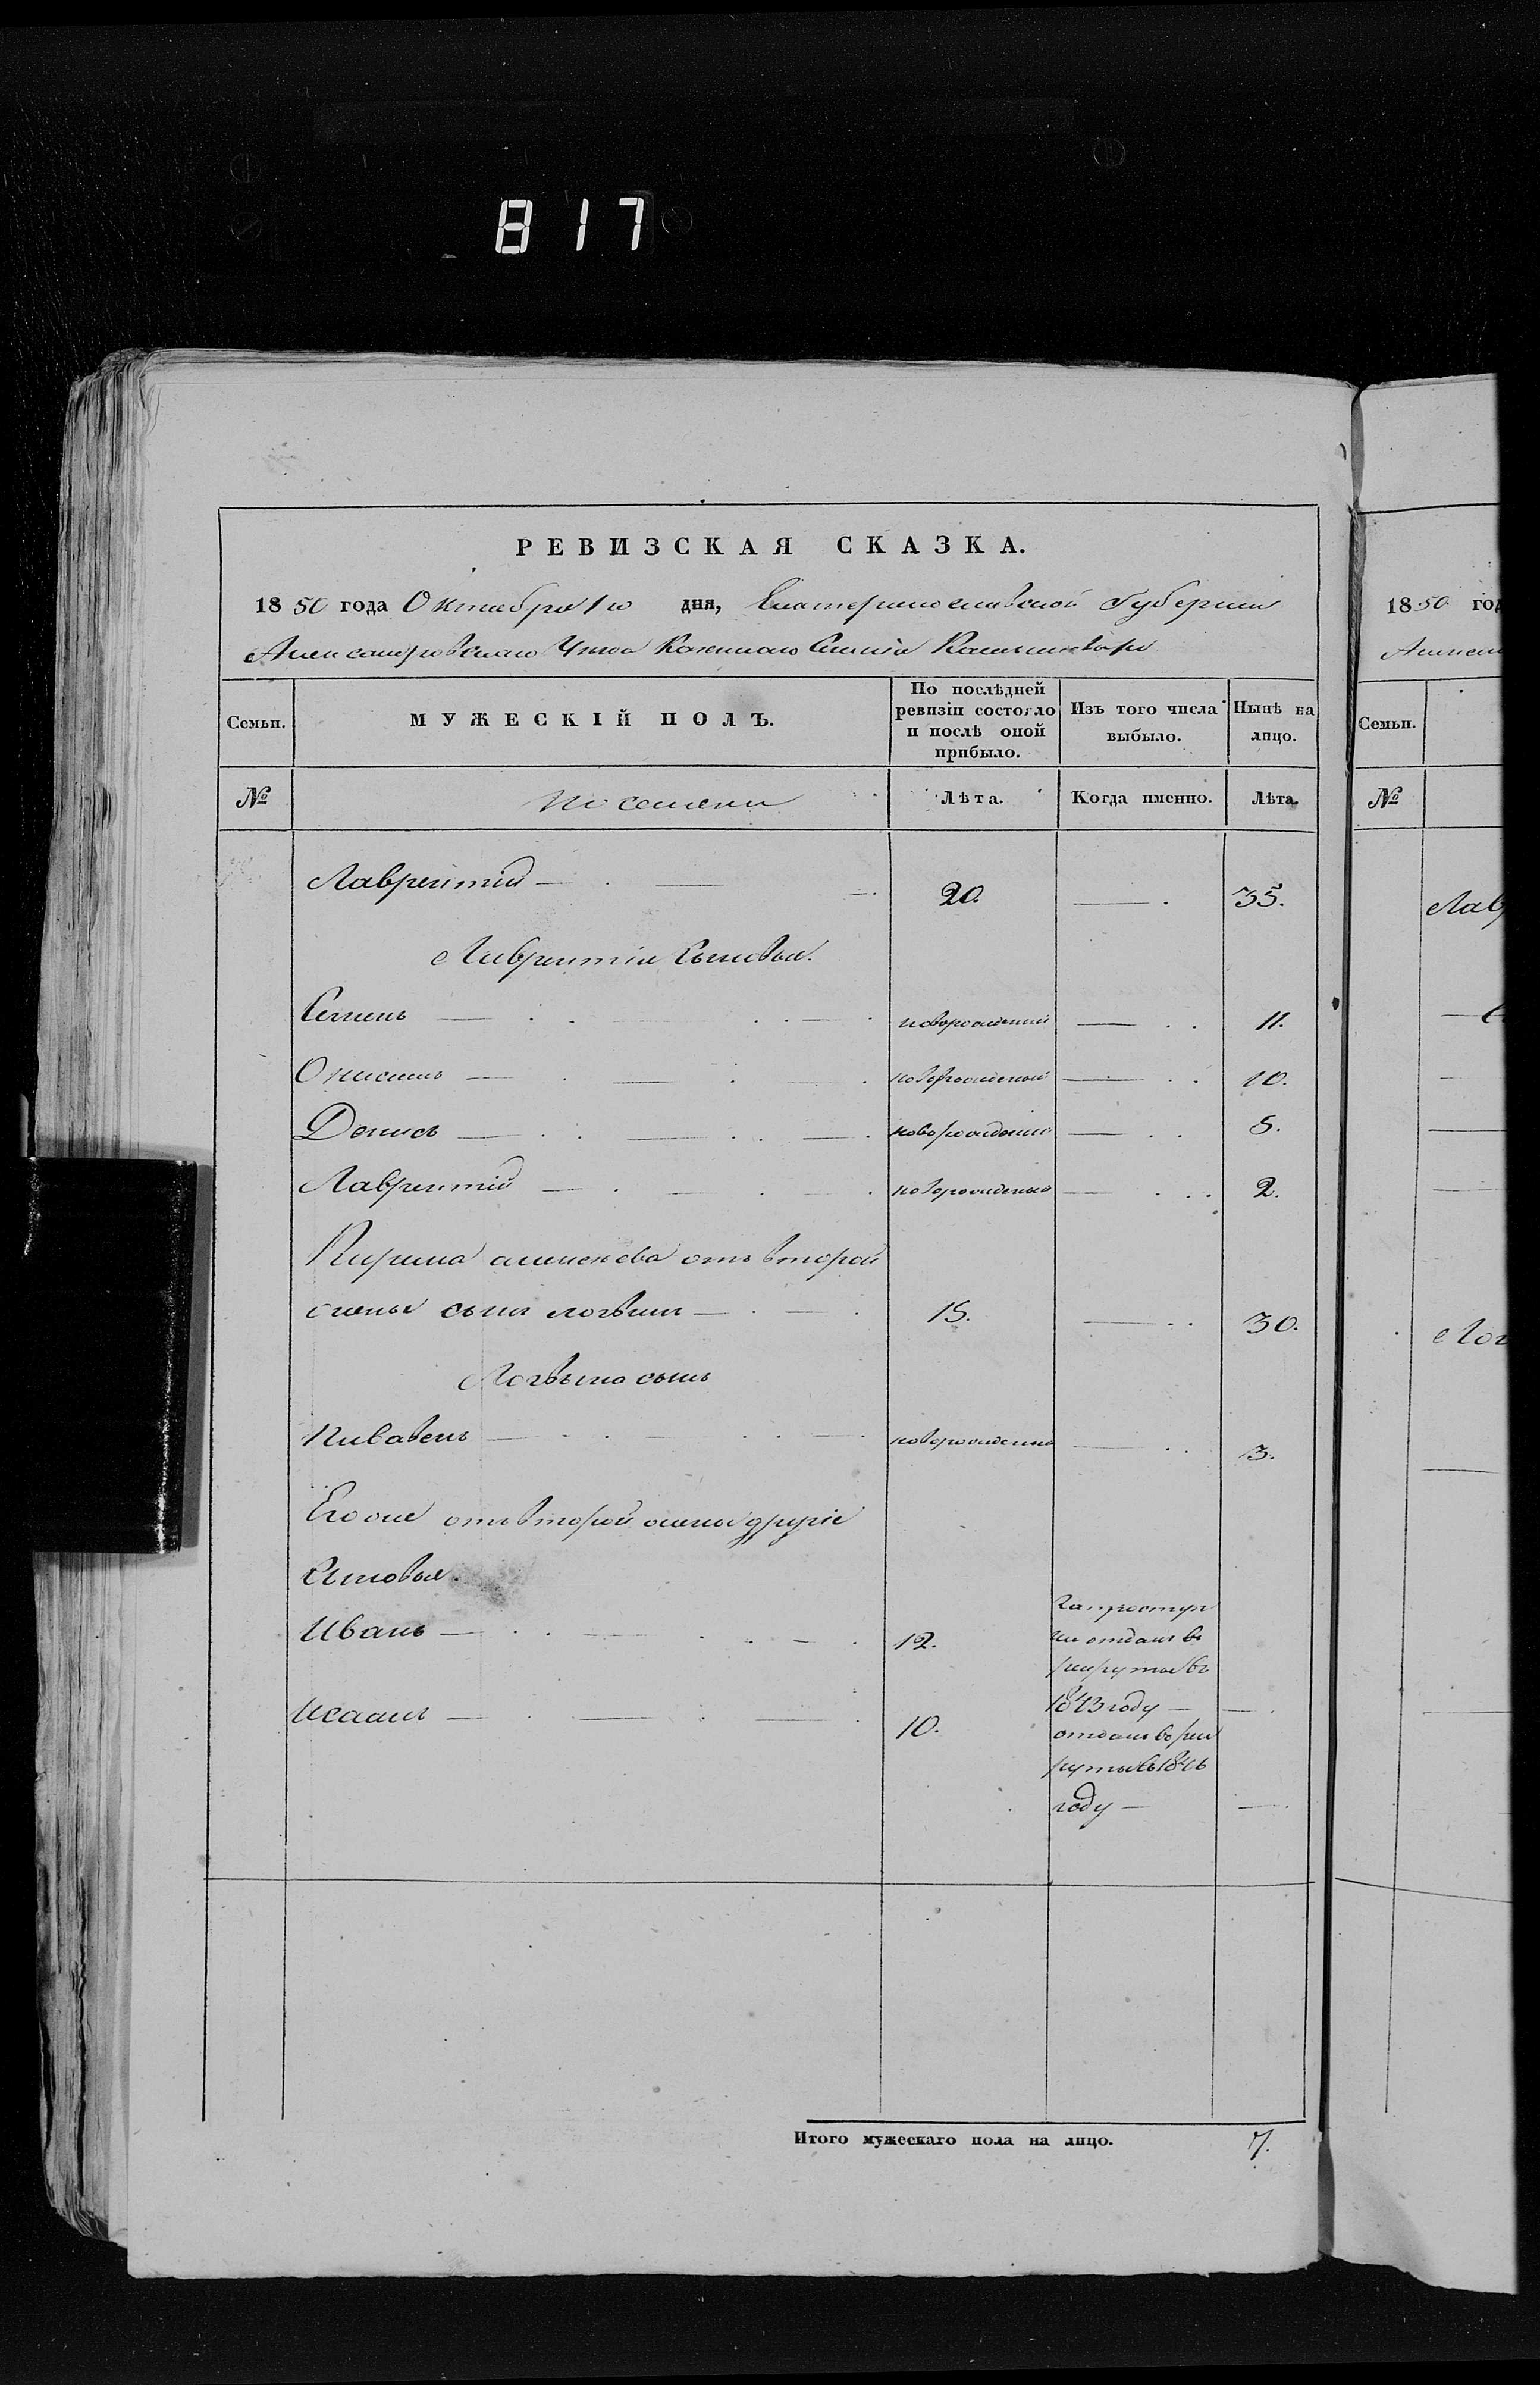 817
РЕВИЗСКАЯ СКАЗКА.
1850 года Октября 1го дня, Екатеринославской Губернии
Александровскаго Казеннаго
Семьи.
МУЖЕСКІЙ ПОЛЪ.
По послѣдней ревизіи состояло и послѣ оной прибыло.
Изъ того числа выбыло.
Нынѣ на лицо.
№
Лѣта.
Когда именно.
Лѣта.
Лаврентій 20. 35.
Лаврентія сыновья.
Семенъ новорожденный 11.
Онисимъ новорожденый 10.
Денисъ новорожденны 5.
Лаврентій новорожденый 2.
Кирила отъ второй
жены сынъ логвинъ 15. 30.
Логвина сынъ
новорожденны 3.
Его же отъ второй жены другіе
Сыновья.
Иванъ 12.
отданъ въ
рекруты въ
1843 году
Исаакъ 10.
отданъ в рек
руты въ 1846
году
Итого мужескаго пола на лицо. 7.
1850 год
Семьи.
№
Лав
Лог